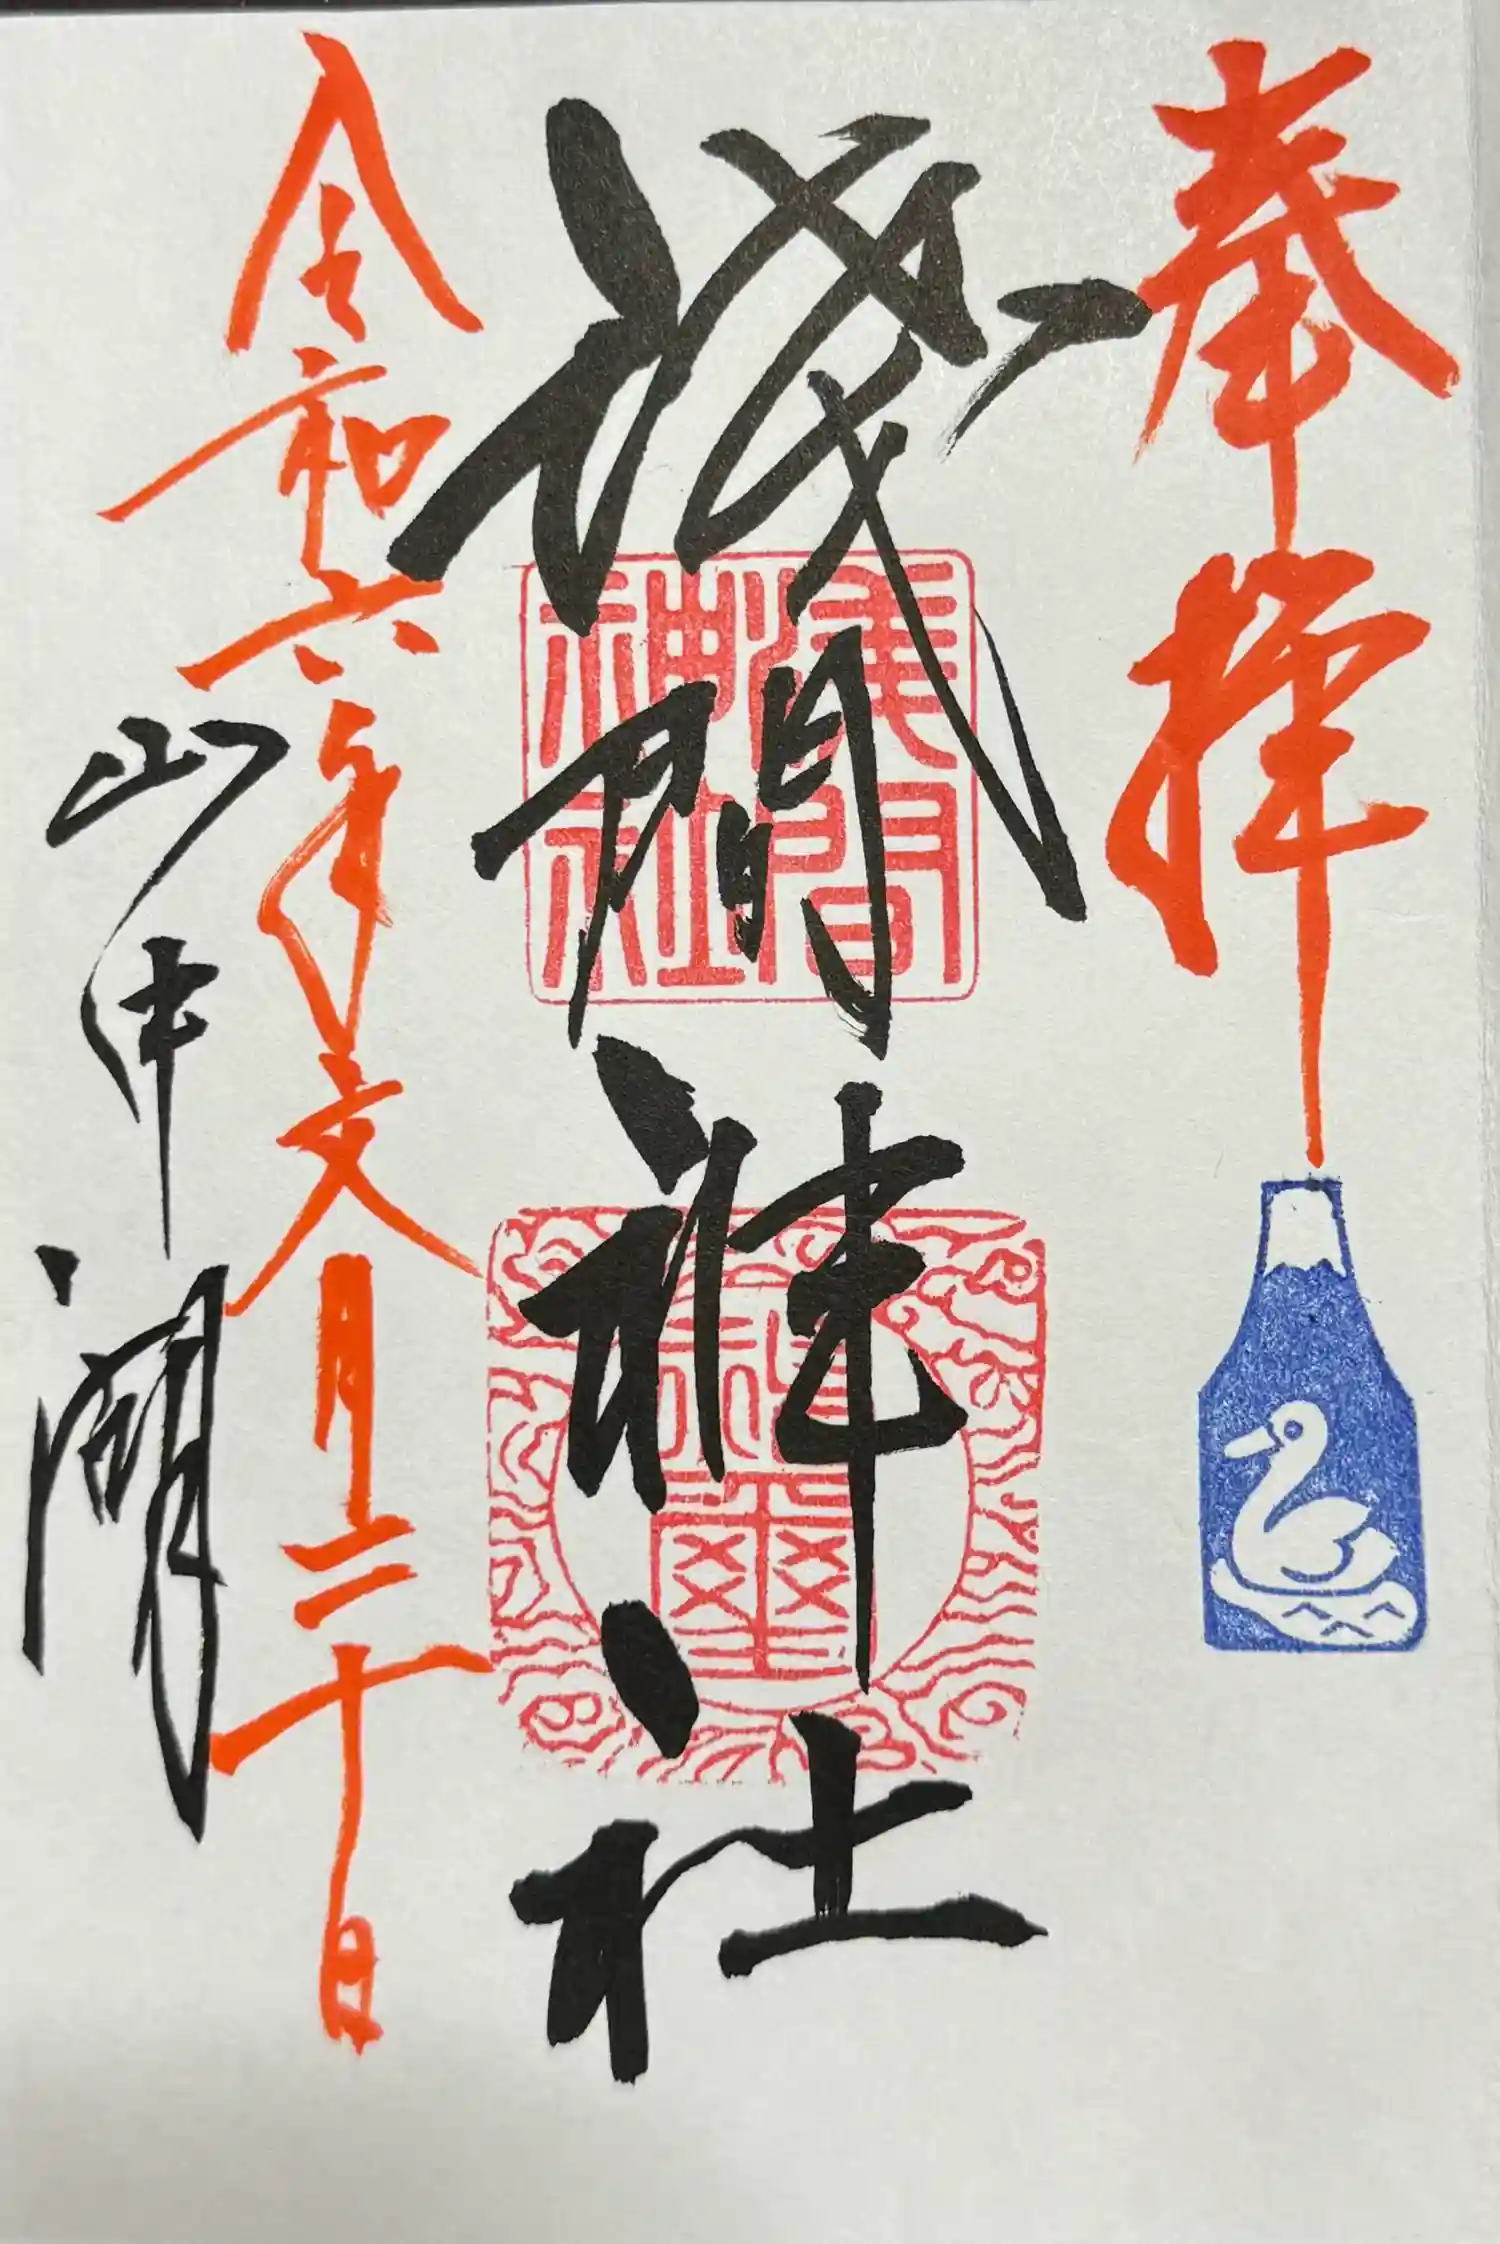 奉拝
浅間神社
淺間神社
令和六年文月二十日
山中湖